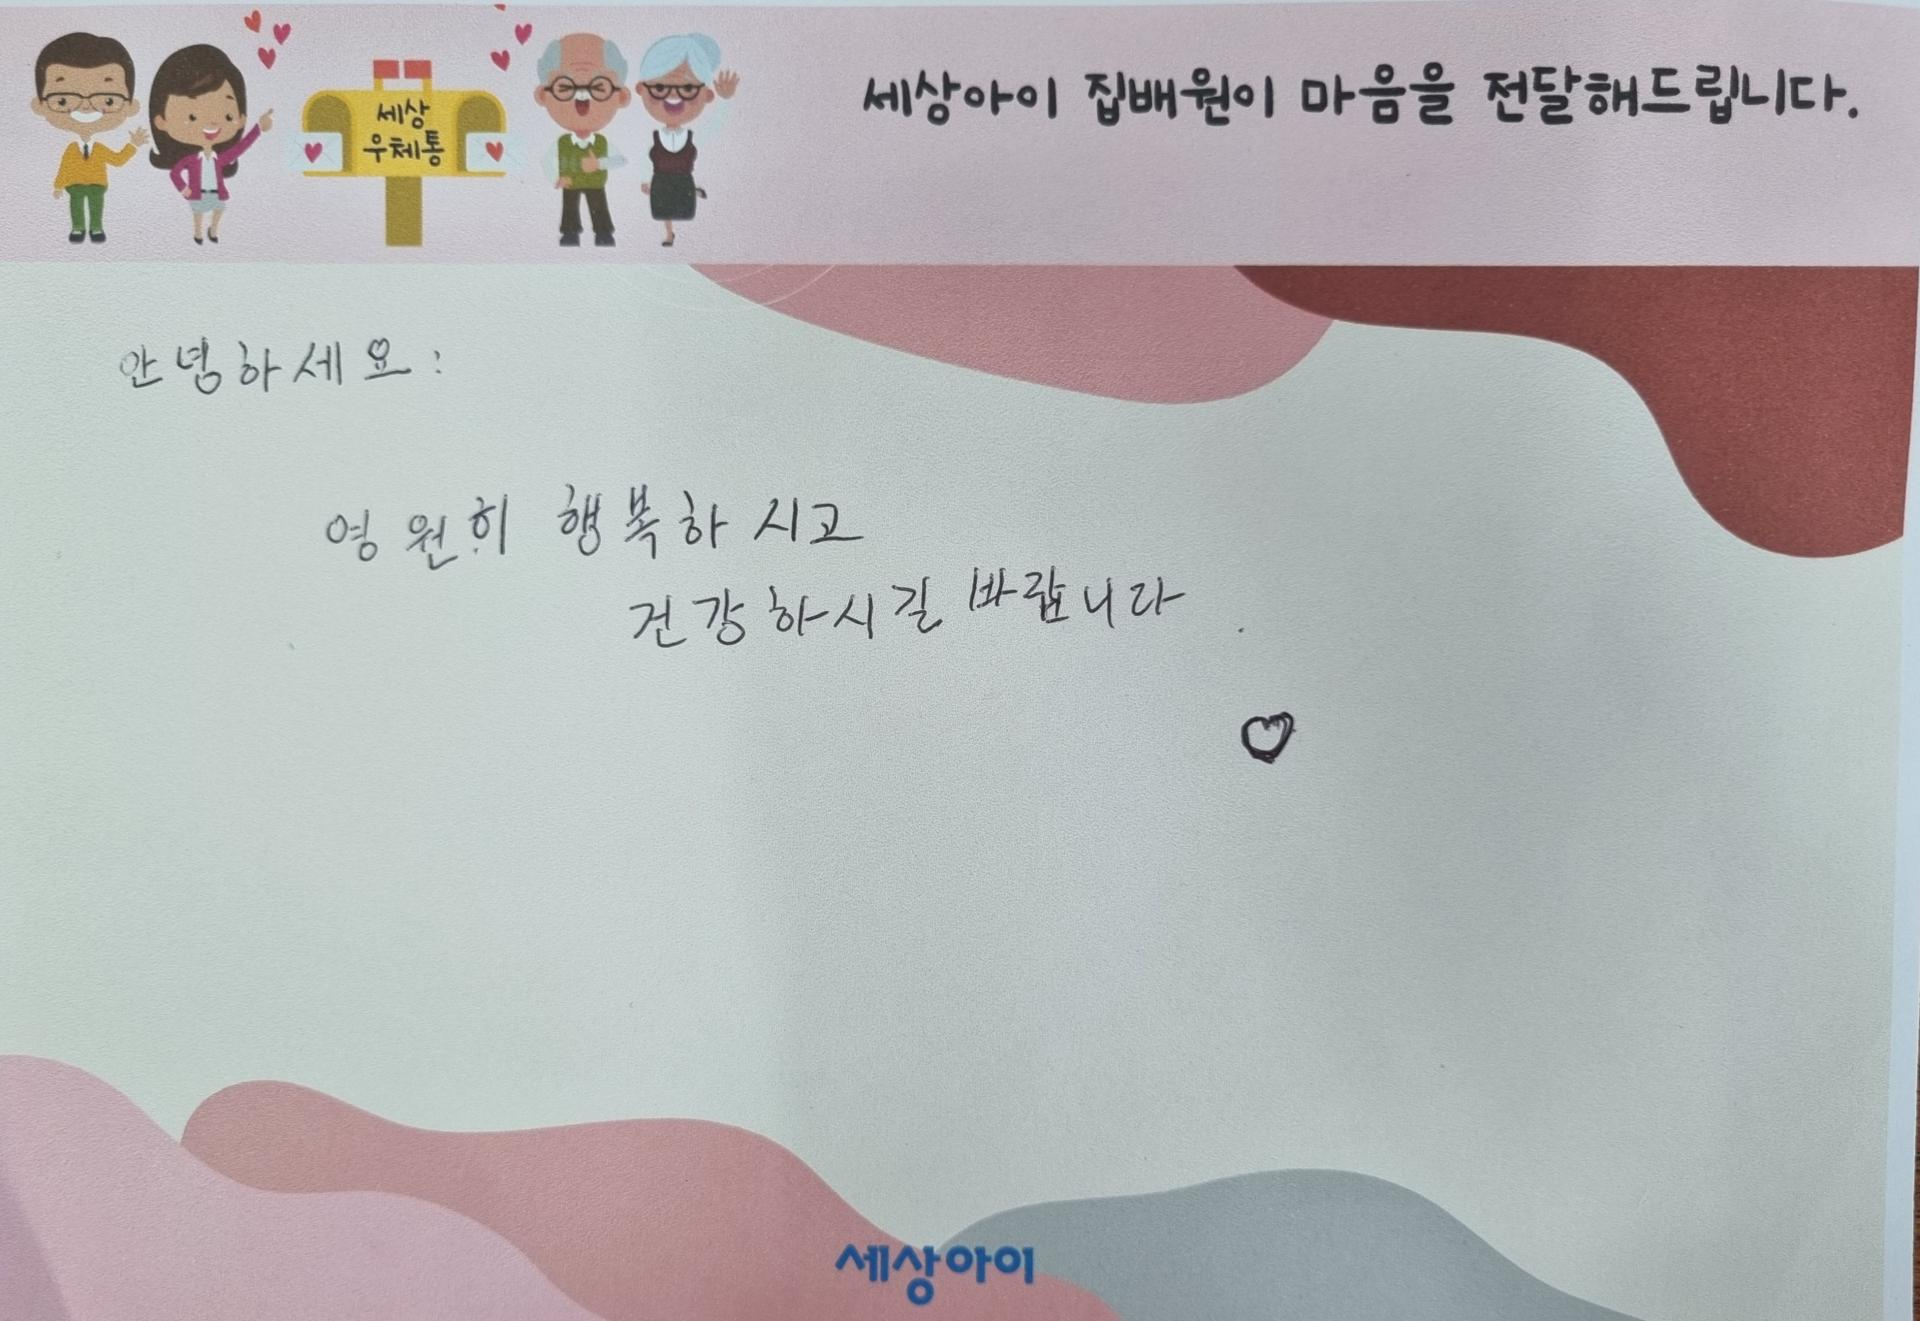 세상
우체통
세상아이 집배원이 마음을 전달해드립니다.
안녕하세요:
영원히 행복하시고
건강하시길 바랍니다.
세상아이